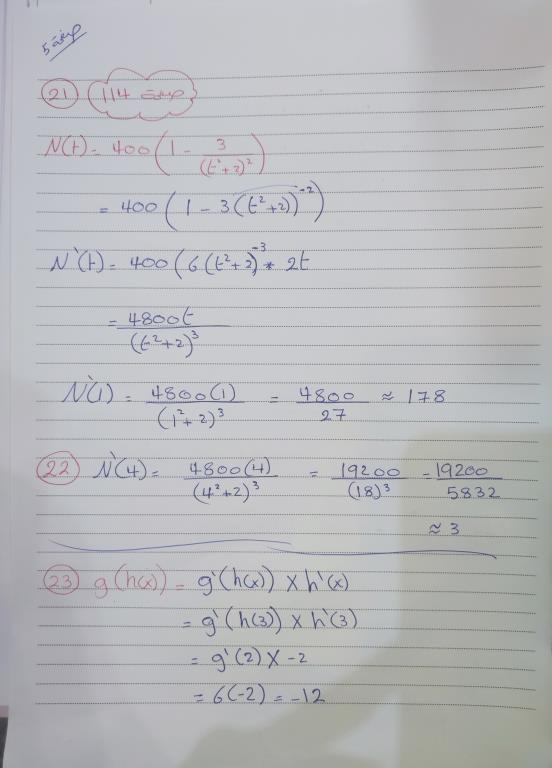 صفحة 5
21 صفحة 114
N(t) = 400 (1 - 3/(t²+2)²)
= 400 (1 - 3(t²+2))⁻²)
N`(t) = 400 (6(t²+2)⁻³ * 2t
= 4800t/(t²+2)³
N`(1) = 4800(1)/(1²+2)³ = 4800/27 ≈ 178
22 N`(4) = 4800(4)/(4²+2)³ = 19200/(18)³ = 19200/5832
≈ 3
23 g(h(x)) = g`(h(x)) X h`(x)
= g`(h(3)) X h`(3)
= g`(2) X -2
= 6(-2) = -12